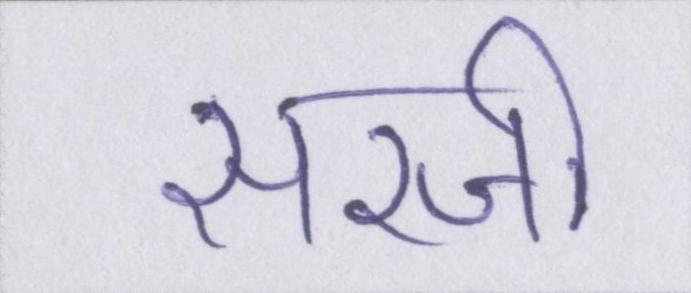 सरजी